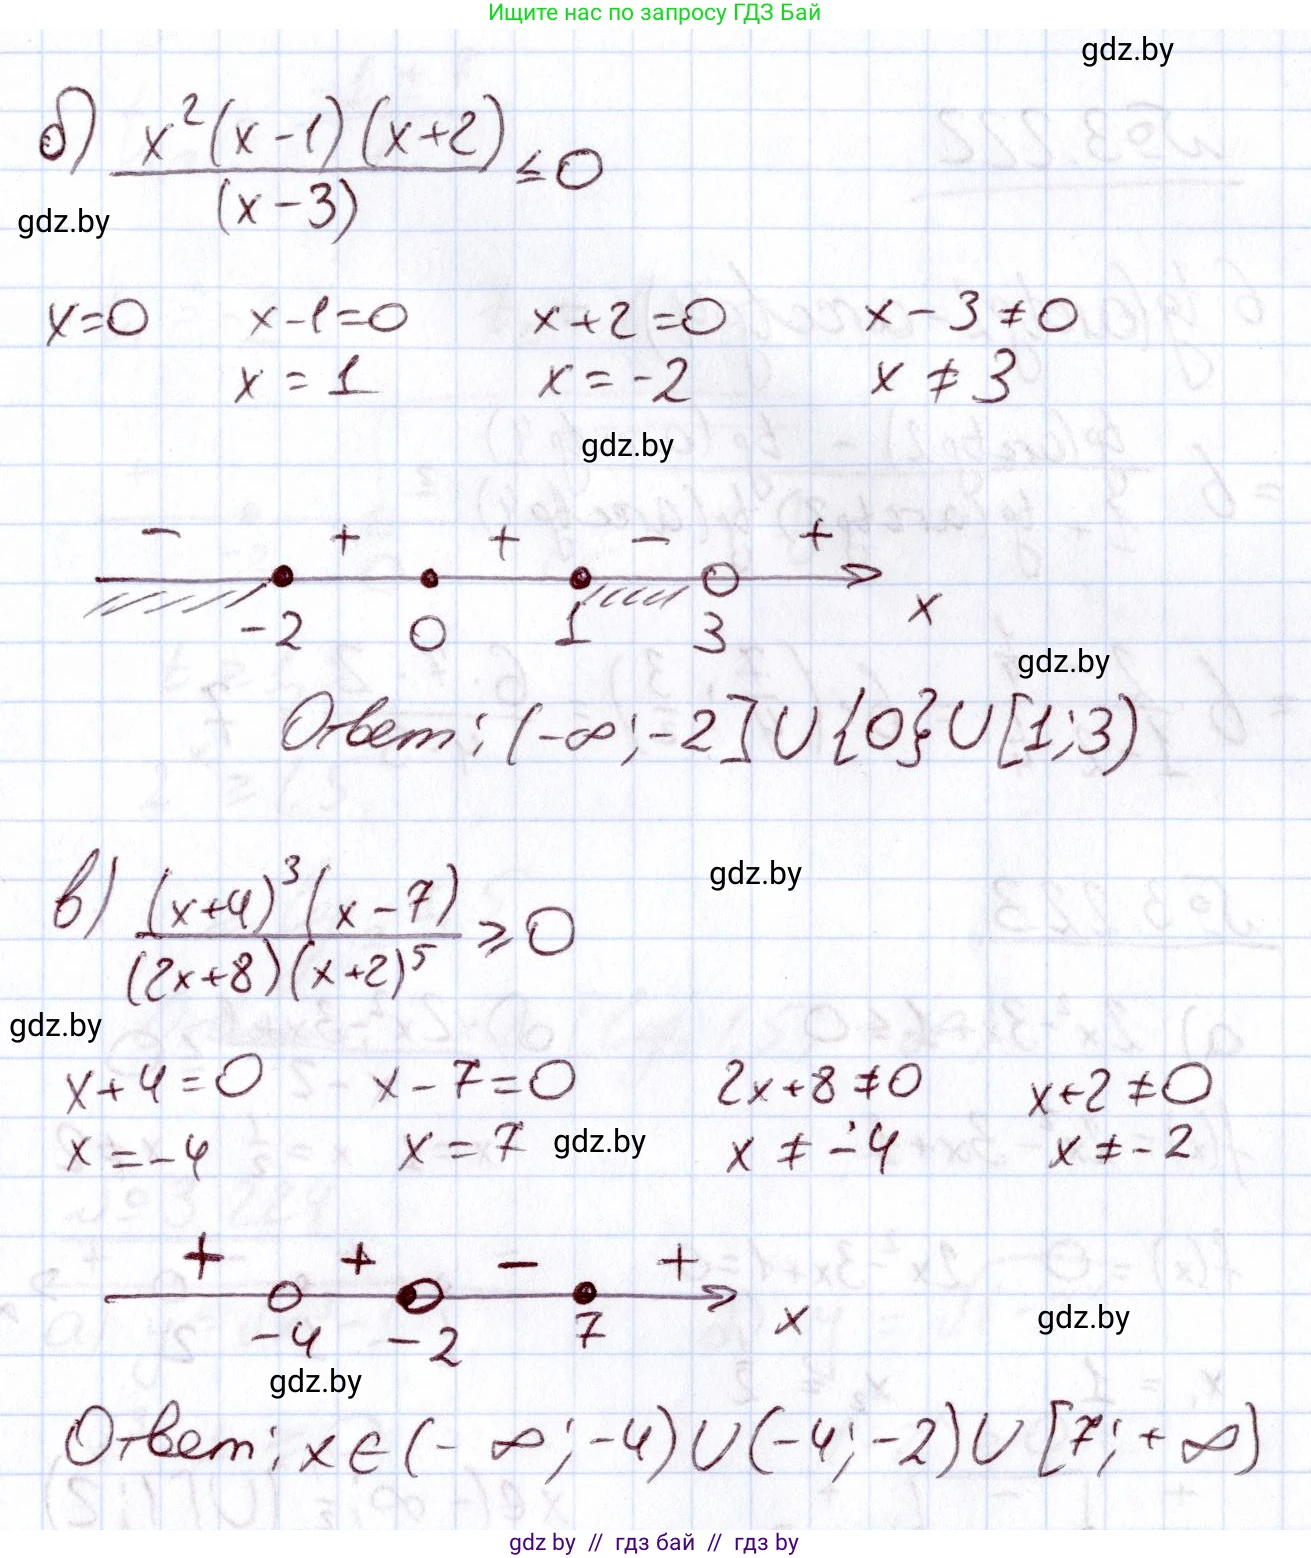 Ищите нас по запросу ГДЗ Бай
gdz.by
б) x²(x-1)(x+2)/(x-3) ≤ 0
gdz.by
x=0 x-1=0 x+2=0 x-3≠0
x=1 x=-2 x≠3
gdz.by
- + + - +
-2 0 1 3 x
gdz.by
Ответ: (-∞;-2]∪{0}∪[1;3)
gdz.by
в) (x+4)³(x-7)/(2x+8)(x+2)⁵ ≥ 0
gdz.by
x+4=0 x-7=0 2x+8≠0 x+2≠0
x=-4 x=7 gdz.by x≠-4 x≠-2
+ + - +
-4 -2 7 x
gdz.by
gdz.by
Ответ: x∈(-∞;-4)∪(-4;-2)∪[7;+∞)
gdz.by // гдз бай // гдз by